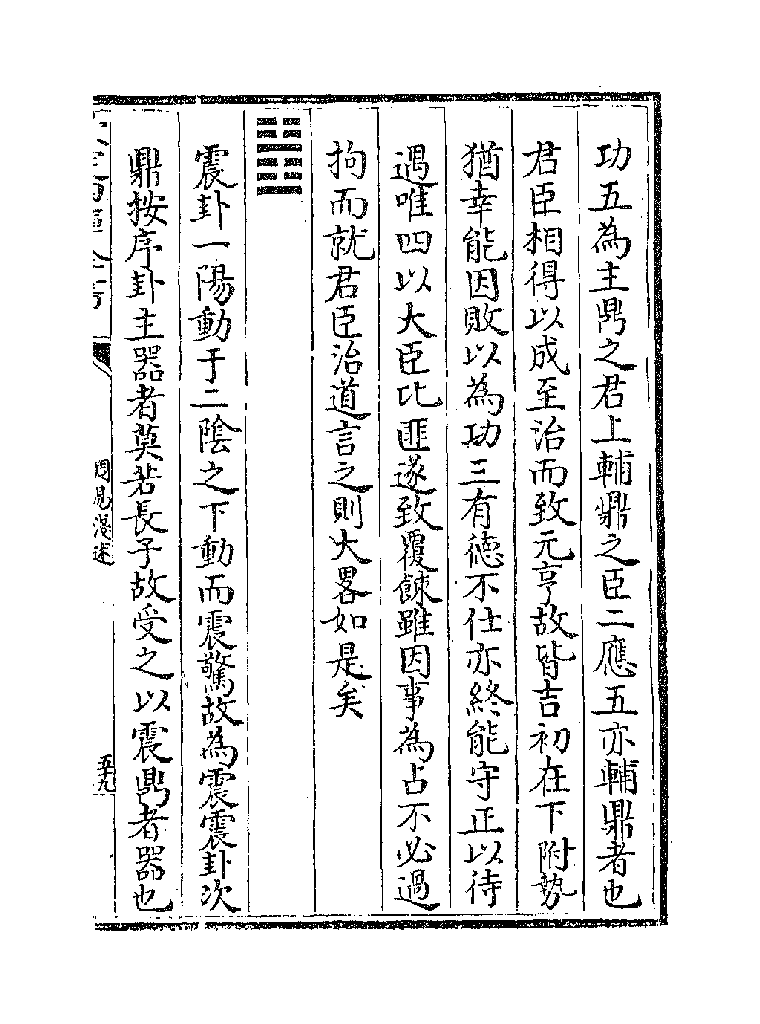 功五為主鼎之君上輔鼎之臣二應五亦輔鼎者也
君臣相得以成至治而致元亨故皆吉初在下附勢
猶幸能因敗以為功三有徳不仕亦終能守正以待
遇唯四以大臣比匪遂致覆餗雖因事為占不必過
拘而就君臣治道言之則大畧如是矣
䷲
震卦一陽動于二隂之下動而震驚故為震震卦次
鼎按序卦主器者莫若長子故受之以震鼎者器也
周易淺述
五十九